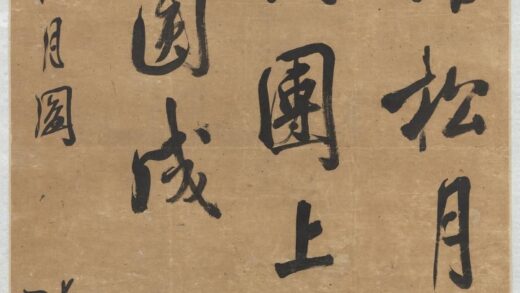 松月
團上
圓成
月圖